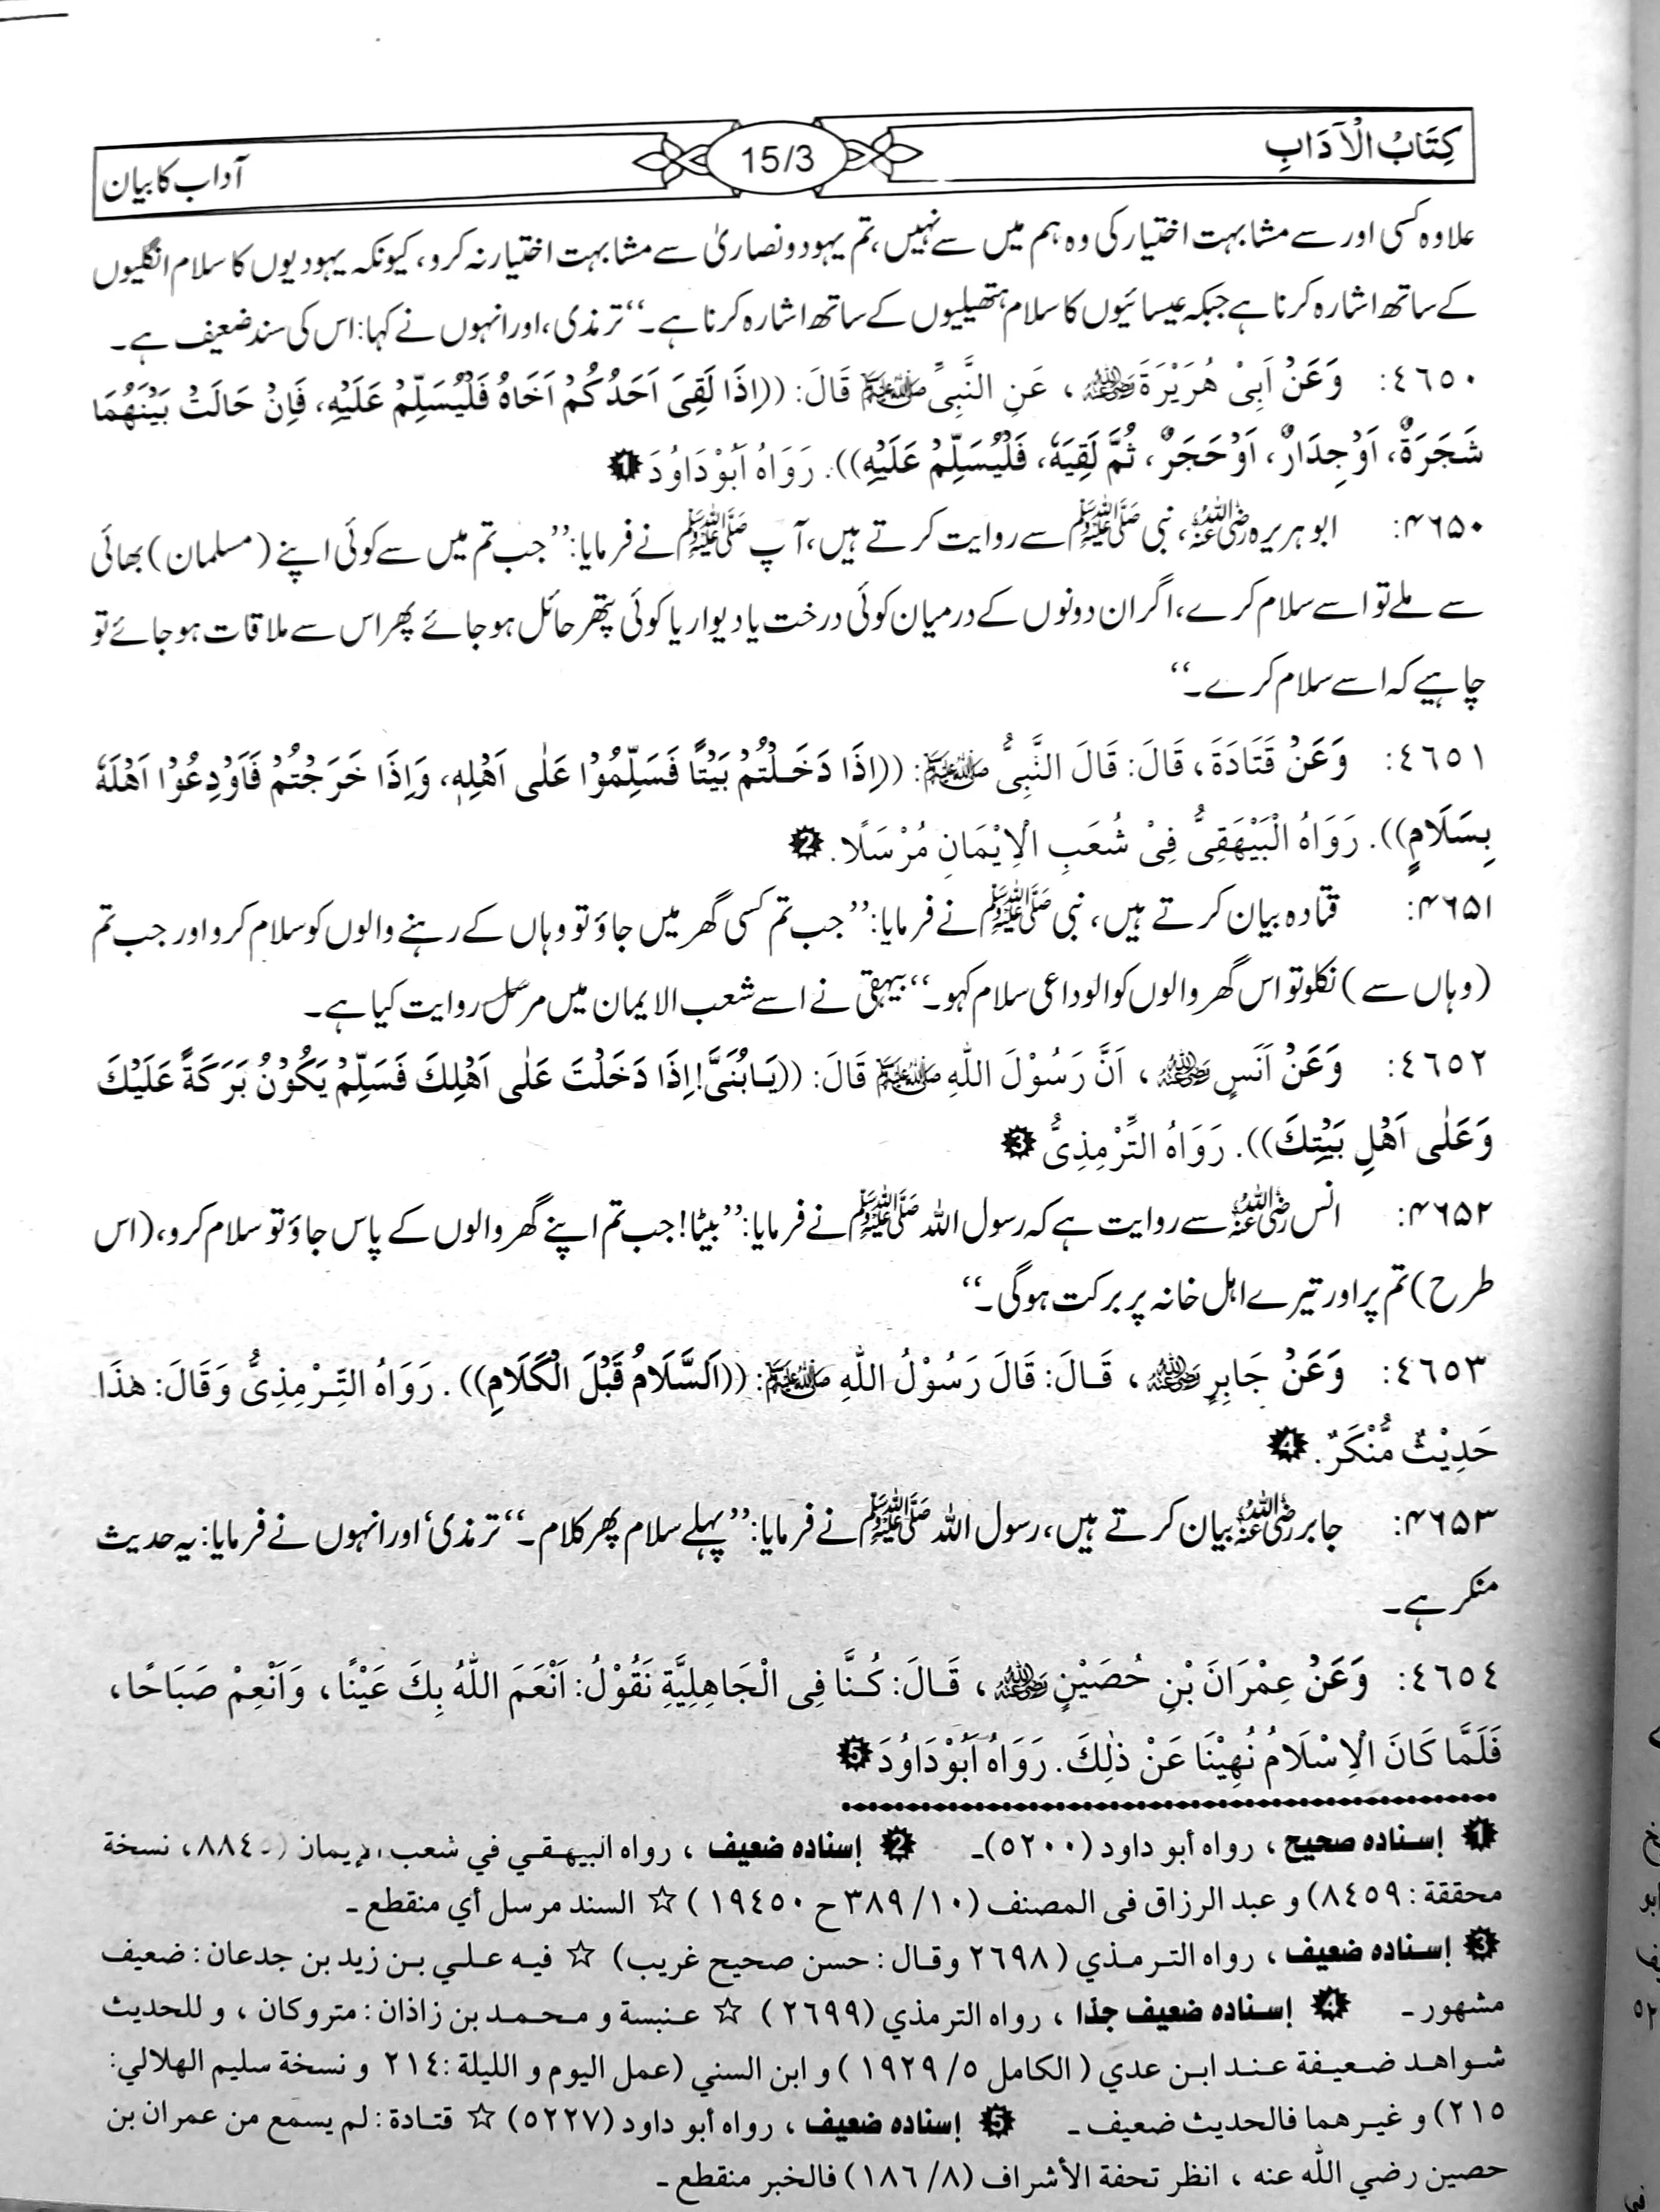 کِتَابُ الْآدَابِ
15/3
آداب کا بیان
علاوہ کسی اور سے مشابہت اختیار کی وہ ہم میں سے نہیں، تم یہود و نصاریٰ سے مشابہت اختیار نہ کرو، کیونکہ یہودیوں کا سلام انگلیوں
کے ساتھ اشارہ کرنا ہے جبکہ عیسائیوں کا سلام ہتھیلیوں کے ساتھ اشارہ کرنا ہے۔‘‘ ترمذی، اور انہوں نے کہا: اس کی سند ضعیف ہے۔
٤٦٥٠: وَعَنْ اَبِیْ هُرَيْرَةَ رضی اللہ عنہ، عَنِ النَّبِيِّ ﷺ قَالَ: ((اِذَا لَقِیَ اَحَدُكُمْ اَخَاهُ فَلْيُسَلِّمْ عَلَيْهِ، فَاِنْ حَالَتْ بَيْنَهُمَا
شَجَرَةٌ، اَوْ جِدَارٌ، اَوْ حَجَرٌ، ثُمَّ لَقِيَهٗ، فَلْيُسَلِّمْ عَلَيْهِ)). رَوَاهُ اَبُوْ دَاوُدَ ❶
۴۶۵۰: ابو ہریرہ رضی اللہ عنہ، نبی ﷺ سے روایت کرتے ہیں، آپ ﷺ نے فرمایا: ’’جب تم میں سے کوئی اپنے (مسلمان) بھائی
سے ملے تو اسے سلام کرے، اگر ان دونوں کے درمیان کوئی درخت یا دیوار یا کوئی پتھر حائل ہو جائے پھر اس سے ملاقات ہو جائے تو
چاہیے کہ اسے سلام کرے۔‘‘
٤٦٥١: وَعَنْ قَتَادَةَ، قَالَ: قَالَ النَّبِيُّ ﷺ: ((اِذَا دَخَلْتُمْ بَيْتًا فَسَلِّمُوْا عَلٰى اَهْلِهٖ، وَاِذَا خَرَجْتُمْ فَاَوْدِعُوْا اَهْلَهٗ
بِسَلَامٍ)). رَوَاهُ الْبَيْهَقِیُّ فِیْ شُعَبِ الْاِيْمَانِ مُرْسَلًا. ❷
۴۶۵۱: قتادہ بیان کرتے ہیں، نبی ﷺ نے فرمایا: ’’جب تم کسی گھر میں جاؤ تو وہاں کے رہنے والوں کو سلام کرو اور جب تم
(وہاں سے) نکلو تو اس گھر والوں کو الوداعی سلام کہو۔‘‘ بیہقی نے اسے شعب الایمان میں مرسل روایت کیا ہے۔
٤٦٥٢: وَعَنْ اَنَسٍ رضی اللہ عنہ، اَنَّ رَسُوْلَ اللّٰهِ ﷺ قَالَ: ((يَابُنَیَّ! اِذَا دَخَلْتَ عَلٰى اَهْلِكَ فَسَلِّمْ يَكُوْنُ بَرَكَةً عَلَيْكَ
وَعَلٰى اَهْلِ بَيْتِكَ)). رَوَاهُ التِّرْمِذِیُّ ❸
۴۶۵۲: انس رضی اللہ عنہ سے روایت ہے کہ رسول اللہ ﷺ نے فرمایا: ’’بیٹا! جب تم اپنے گھر والوں کے پاس جاؤ تو سلام کرو، (اس
طرح) تم پر اور تیرے اہل خانہ پر برکت ہوگی۔‘‘
٤٦٥٣: وَعَنْ جَابِرٍ رضی اللہ عنہ، قَالَ: قَالَ رَسُوْلُ اللّٰهِ ﷺ: ((اَلسَّلَامُ قَبْلَ الْكَلَامِ)). رَوَاهُ التِّرْمِذِیُّ وَقَالَ: هٰذَا
حَدِيْثٌ مُّنْكَرٌ. ❹
۴۶۵۳: جابر رضی اللہ عنہ بیان کرتے ہیں، رسول اللہ ﷺ نے فرمایا: ’’پہلے سلام پھر کلام۔‘‘ ترمذی، اور انہوں نے فرمایا: یہ حدیث
منکر ہے۔
٤٦٥٤: وَعَنْ عِمْرَانَ بْنِ حُصَيْنٍ رضی اللہ عنہ، قَالَ: كُنَّا فِی الْجَاهِلِيَّةِ نَقُوْلُ: اَنْعَمَ اللّٰهُ بِكَ عَيْنًا، وَاَنْعِمْ صَبَاحًا،
فَلَمَّا كَانَ الْاِسْلَامُ نُهِيْنَا عَنْ ذٰلِكَ. رَوَاهُ اَبُوْ دَاوُدَ ❺
❶ إسناده صحيح، رواه أبو داود (٥٢٠٠)۔ ❷ إسناده ضعيف، رواه البيهقي في شعب الإيمان (٨٨٤٥، نسخة
محققة: ٨٤٥٩) و عبد الرزاق فى المصنف (١٠/ ٣٨٩ ح ١٩٤٥٠) ☆ السند مرسل أي منقطع۔
❸ إسناده ضعيف، رواه الترمذي (٢٦٩٨ وقال: حسن صحيح غريب) ☆ فيه علي بن زيد بن جدعان: ضعيف
مشهور۔ ❹ إسناده ضعيف جدًا، رواه الترمذي (٢٦٩٩) ☆ عنبسة و محمد بن زاذان: متروكان، و للحديث
شواهد ضعيفة عند ابن عدي (الكامل ٥/ ١٩٢٩) و ابن السني (عمل اليوم و الليلة: ٢١٤ و نسخة سليم الهلالي:
٢١٥) و غيرهما فالحديث ضعيف۔ ❺ إسناده ضعيف، رواه أبو داود (٥٢٢٧) ☆ قتادة: لم يسمع من عمران بن
حصين رضي الله عنه، انظر تحفة الأشراف (٨/ ١٨٦) فالخبر منقطع۔